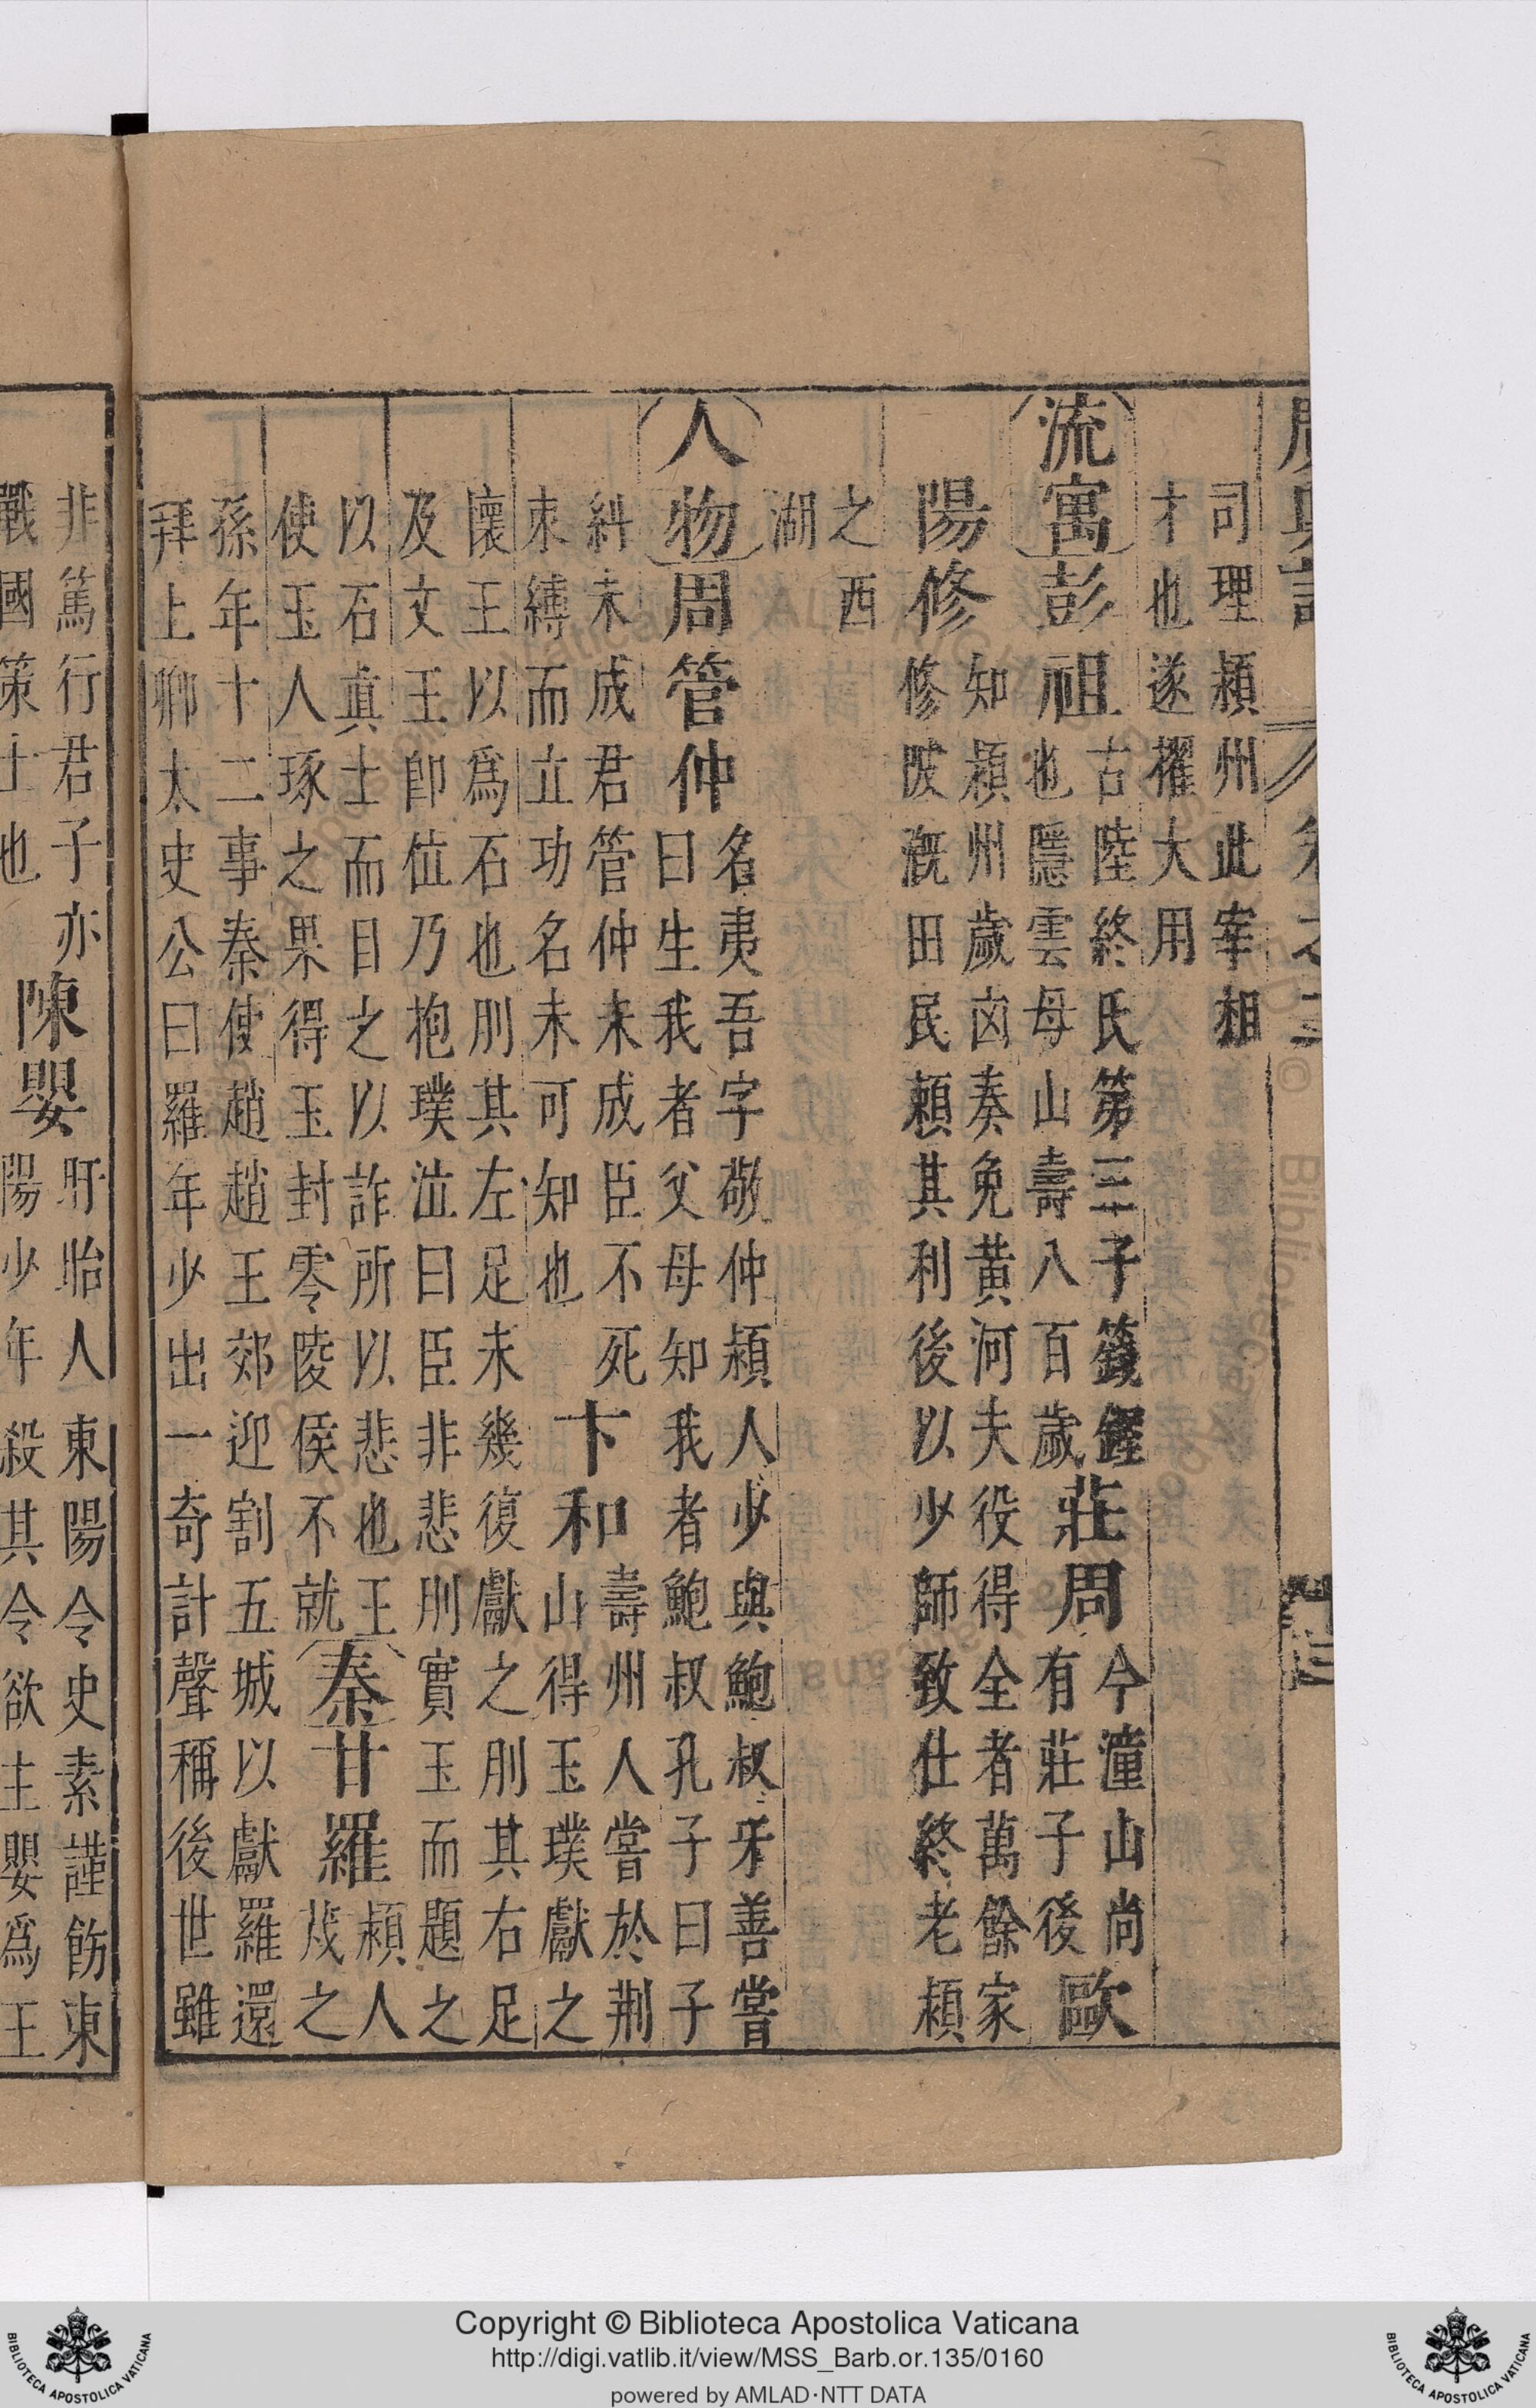 司理潁州此宰相
才也遂擢大用
流寓彭祖
古陸終氏第三子籛鏗
也隱雲母山壽八百歲
莊周
今潼山尚
有莊子後
歐
陽修
知潁州歲凶奏免黃河夫役得全者萬餘家
修陂溉田民賴其利後以少師致仕終老潁
之西
湖
人物周管仲
名夷吾字敬仲潁人少與鮑叔牙善嘗
曰生我者父母知我者鮑叔孔子曰子
糾未成君管仲未成臣不死
束縛而立功名未可知也
卞和
壽州人嘗於荆
山得玉璞獻之
懷王以爲石也刖其左足未幾復獻之刖其右足
及文王卽位乃抱璞泣曰臣非悲刖實玉而題之
以石眞士而目之以詐所以悲也王
使玉人琢之果得玉封零陵侯不就
秦甘羅
潁人
茂之
孫年十二事秦使趙趙王郊迎割五城以獻羅還
拜上卿太史公曰羅年少出一奇計聲稱後世雖
非篤行君子亦
戰國策士也
陳嬰
盱眙人東陽令史素謹飭東
陽少年殺其令欲主嬰爲王
Copyright © Biblioteca Apostolica Vaticana
http://digi.vatlib.it/view/MSS_Barb.or.135/0160
powered by AMLAD·NTT DATA
BIBLIOTECA APOSTOLICA VATICANA
BIBLIOTECA APOSTOLICA VATICANA